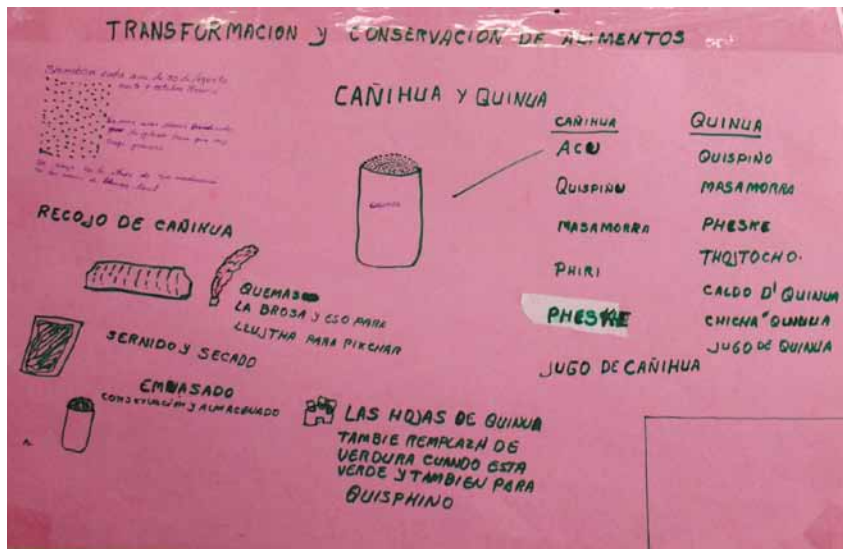 TRANSFORMACION Y CONSERVACION DE ALIMENTOS
CAÑIHUA Y QUINUA
CAÑIHUA
ACU
QUISPIÑO
MASAMORRA
PHIRI
PHESKE
JUGO DE CAÑIHUA
QUINUA
QUISPIÑO
MASAMORRA
PHESKE
THQITOCHO.
CALDO D' QUINUA
CHICHA " QUINUA
JUGO DE QUINUA
RECOJO DE CAÑIHUA
QUEMAS
LA BROSA Y ESO PARA
LLUJTHA PARA PIKCHAR
SERNIDO Y SECADO
EMBASADO
CONSERVACIÓN Y ALMACENADO
LAS HOJAS DE QUINUA
TAMBIE REMPLAZA DE
VERDURA CUANDO ESTA
VERDE Y TAMBIEN PARA
QUISPHINO